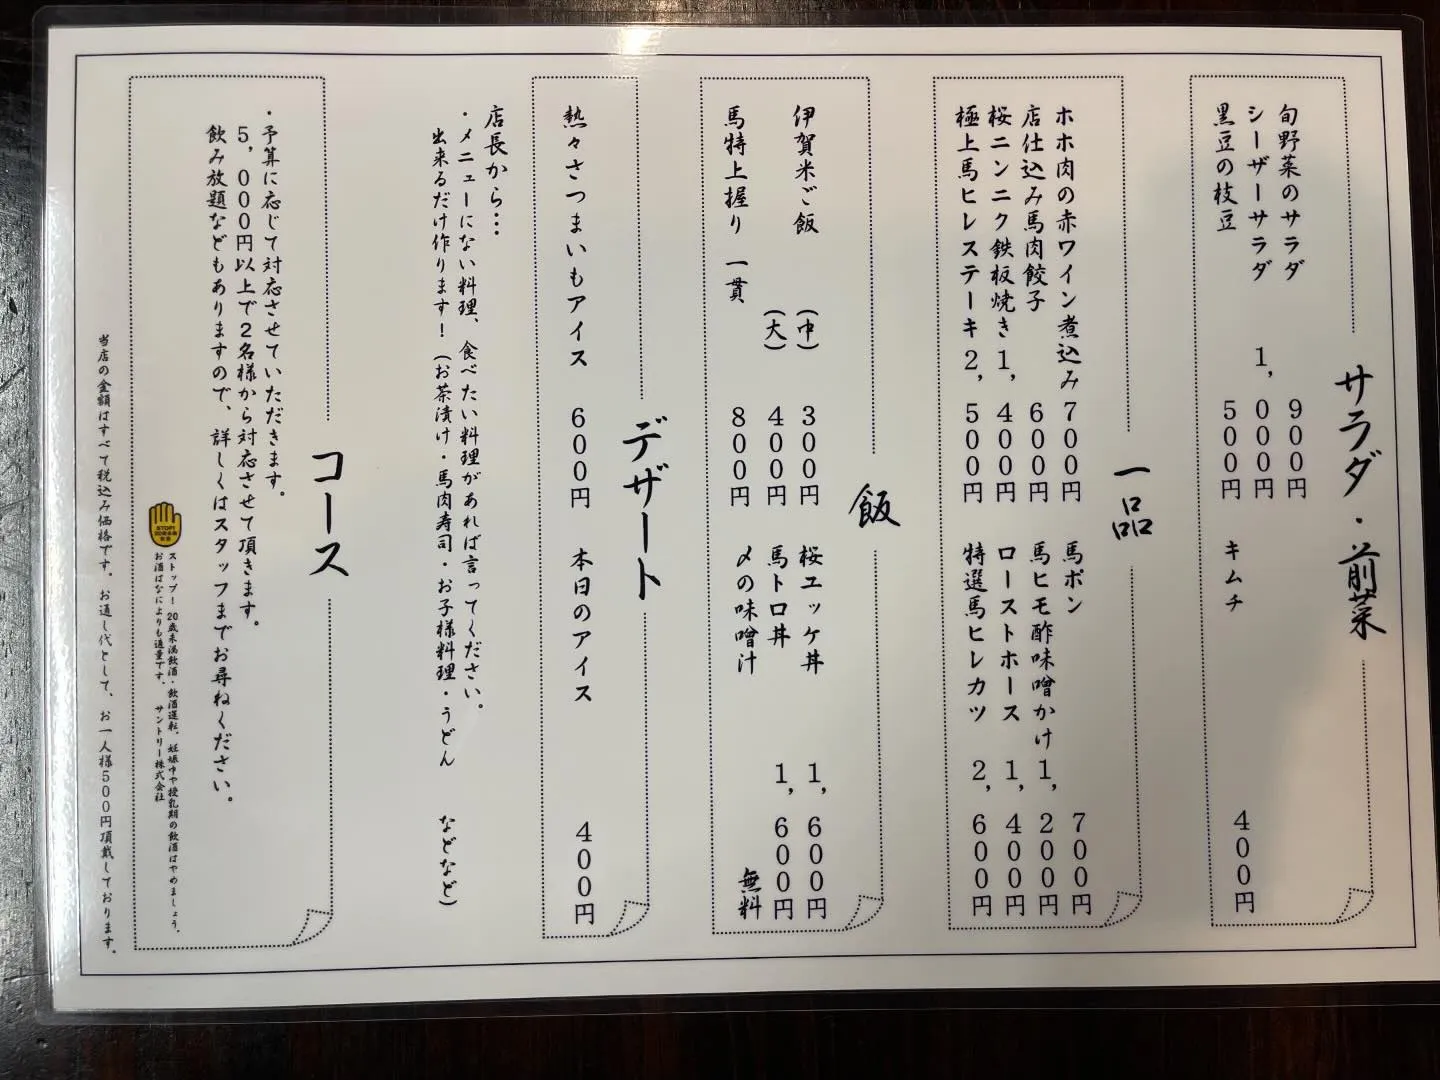 サラダ・前菜
旬野菜のサラダ 900円
シーザーサラダ 1,000円
黒豆の枝豆 500円
キムチ 400円
一品
ホホ肉の赤ワイン煮込み 700円
店仕込み馬肉餃子 600円
桜ニンニク鉄板焼き 1,400円
極上馬ヒレステーキ 2,500円
馬ポン 700円
馬ヒモ酢味噌かけ 1,200円
ローストホース 1,400円
特選馬ヒレカツ 2,600円
飯
伊賀米ご飯 (中) 300円
(大) 400円
馬特上握り 一貫 800円
桜ユッケ丼 1,600円
馬トロ丼 1,600円
〆の味噌汁 無料
デザート
熱々さつまいもアイス 600円
本日のアイス 400円
店長から…
・メニューにない料理、食べたい料理があれば言ってください。
出来るだけ作ります！(お茶漬け・馬肉寿司・お子様料理・うどん などなど)
コース
・予算に応じて対応させていただきます。
5,000円以上で2名様から対応させて頂きます。
飲み放題などもありますので、詳しくはスタッフまでお尋ねください。
STOP!
ストップ！20歳未満飲酒・飲酒運転。妊娠中や授乳期の飲酒はやめましょう。
お酒はなによりも適量です。 サントリー株式会社
当店の金額はすべて税込み価格です。お通し代として、お一人様500円頂戴しております。